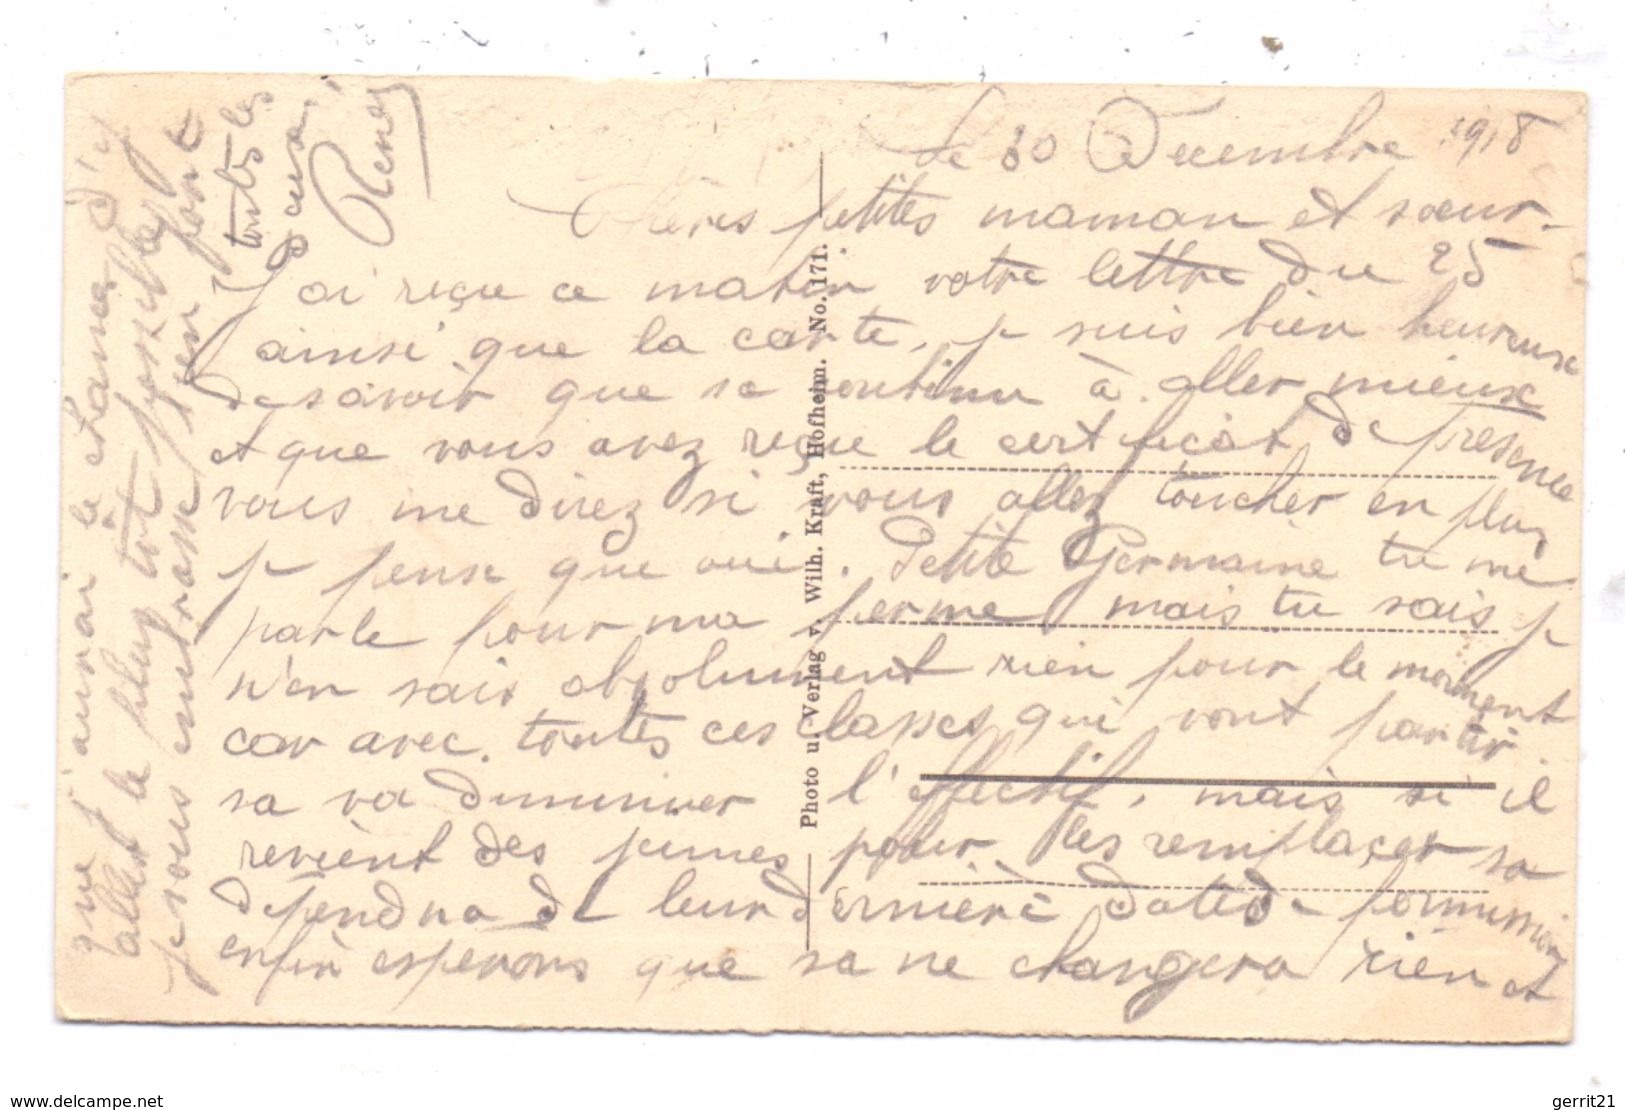 Le 30 Decembre 1918
Chères petites maman et sœur.
J'ai reçu ce matin votre lettre du 25
ainsi que la carte, je suis bien heureuse
de savoir que sa continu à aller mieux
et que vous avez reçu le certificat de présence
vous me direz si vous allez toucher en plus
je pense que oui. Petite Germaine tu me
parle pour ma perme mais tu sais je
n'en sais absolument rien pour le moment
car avec toutes ces classes qui vont partir
sa va diminuer l'effectif, mais si il
revient des jeunes pour les remplacer sa
dépendra de leur dernière date de permission
enfin esperons que sa ne changera rien et
que j'aurai la chance d'y
aller le plus tôt possible
je vous embrasse bien fort
toutes les
deux.
René
Photo u. Verlag v. Wilh. Kraft, Hofheim. No. 171.
www.delcampe.net
gerrit21